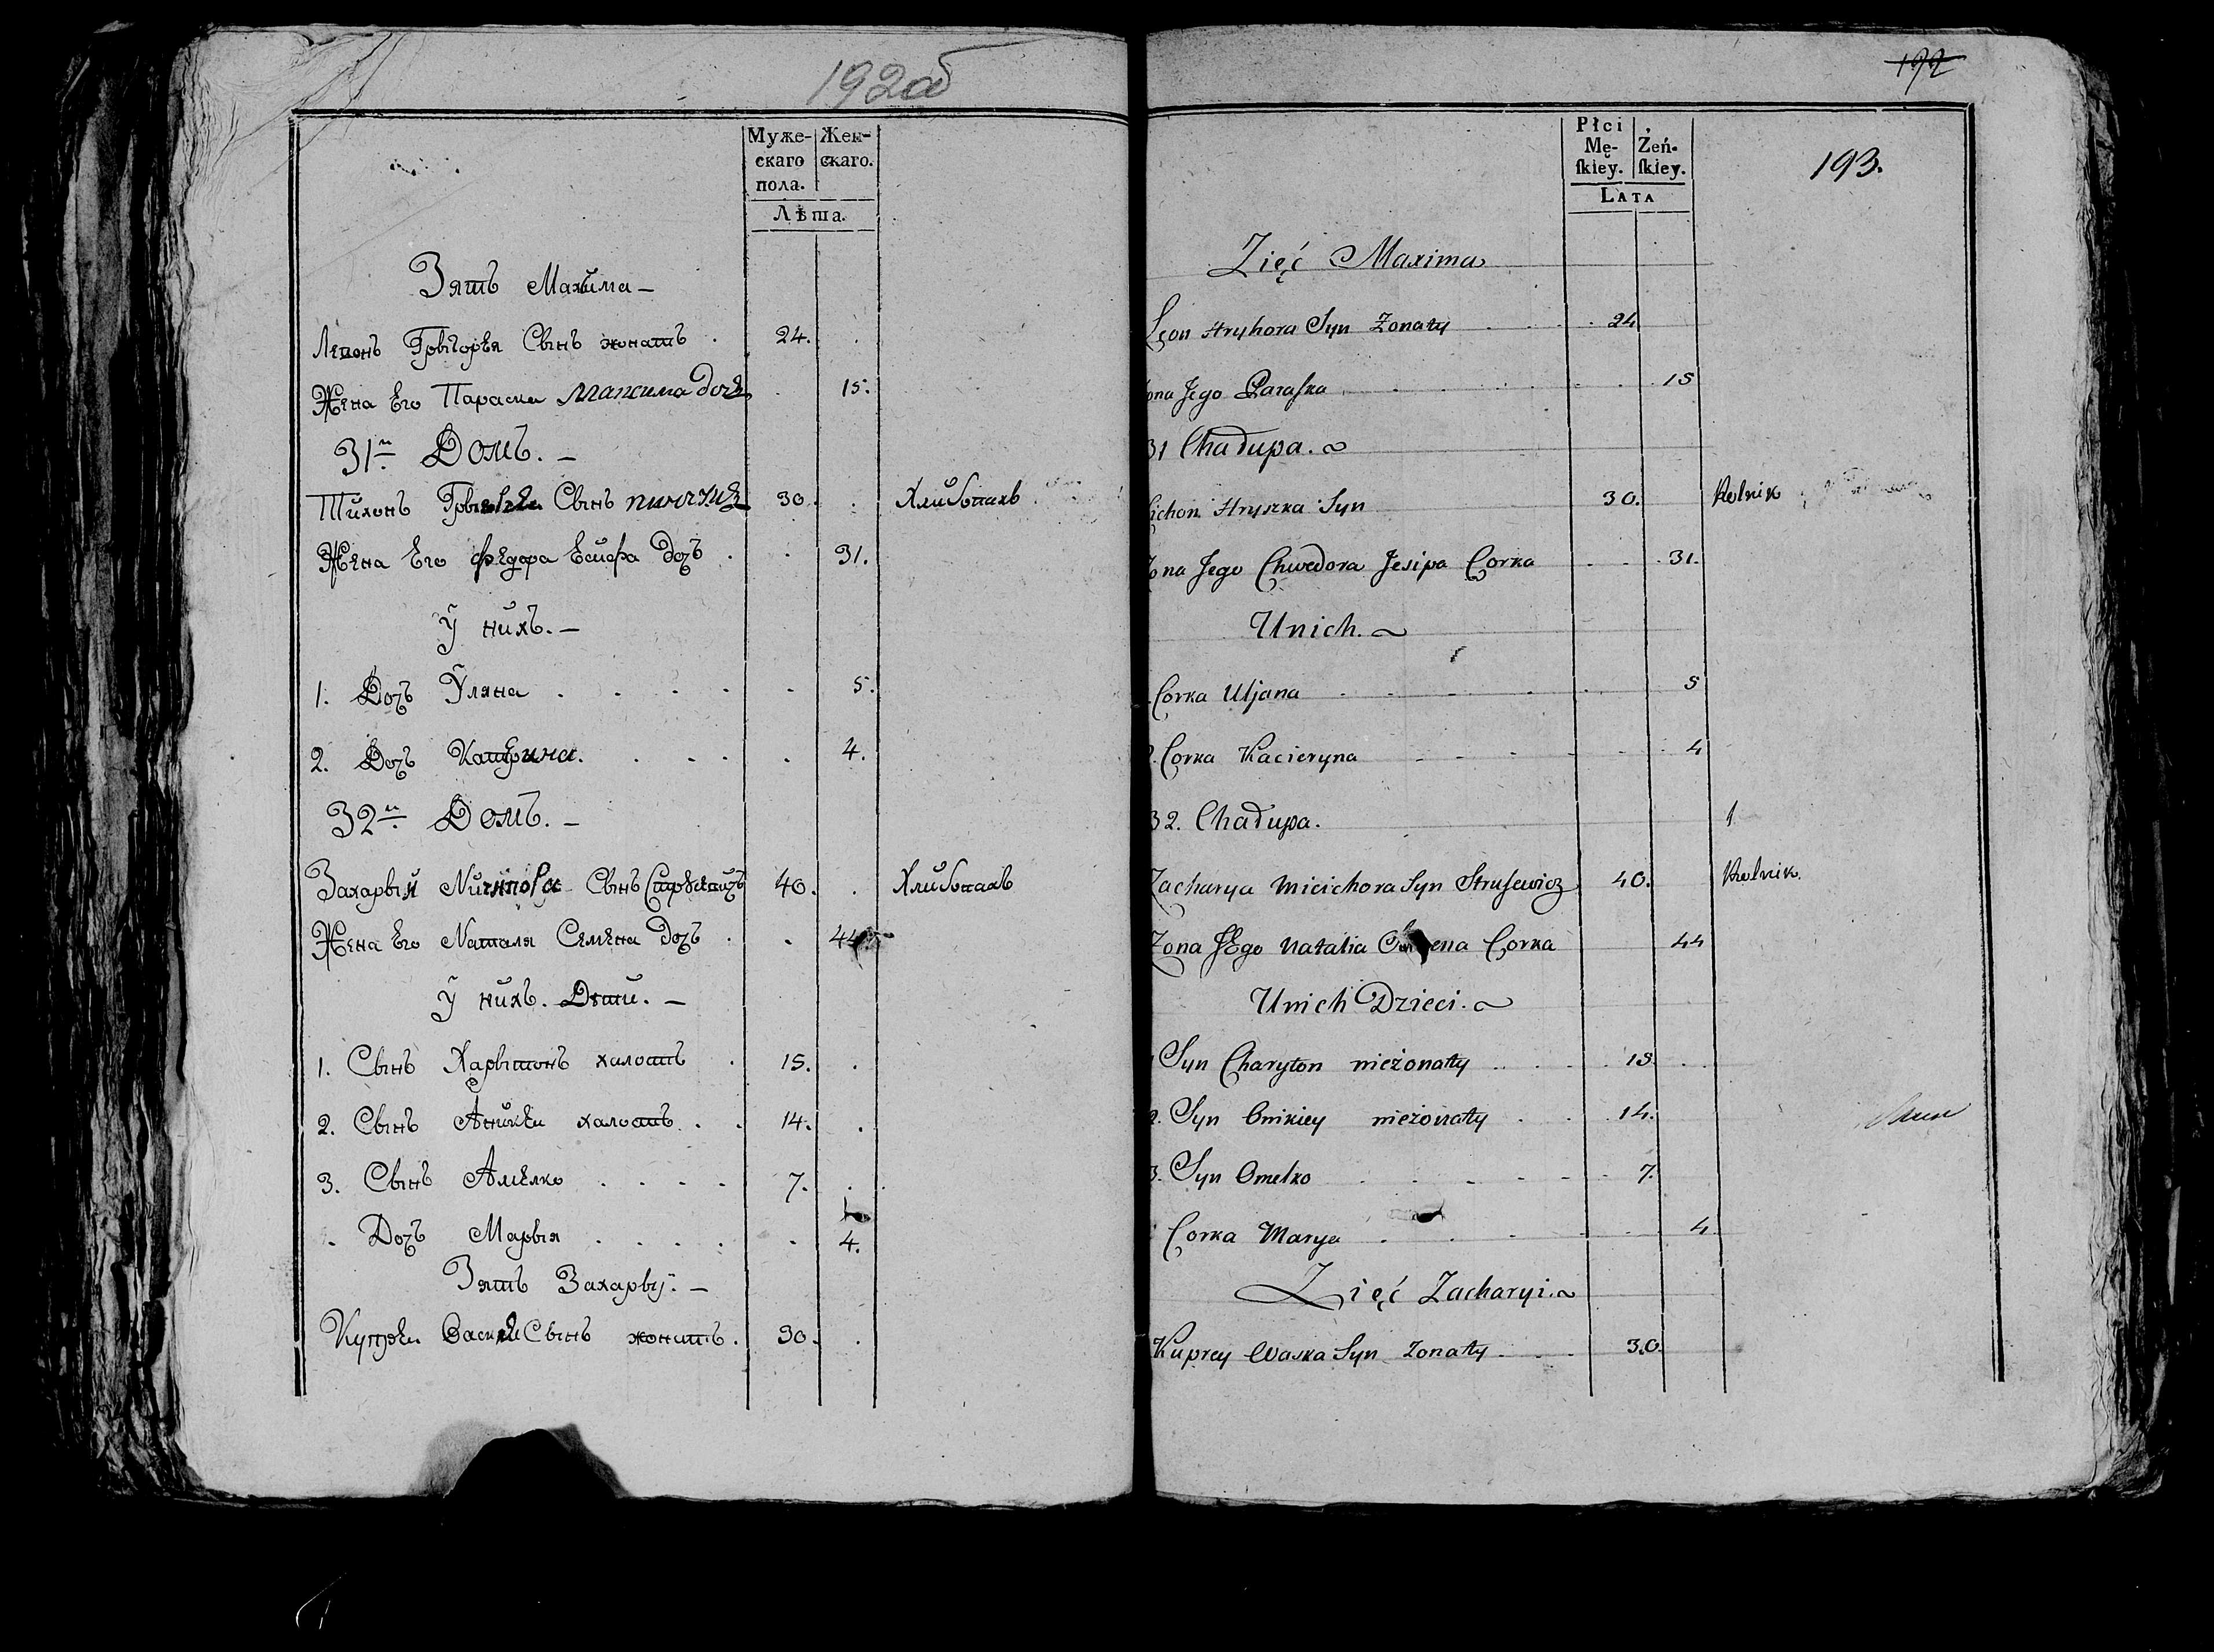 192об
Муже-
скаго
пола.
Жен-
скаго.
Лѣта.
Зять Махима —
Леѡнъ Грыгорея Сынъ жонатъ . 24.
Жена Его Параска Максима дочь 15.
31й Домъ. —
Тихонъ Сынъ 30. Хлибопахъ
Жена Его Федора Есифа Дочъ . 31.
У нихъ. —
1. Дочъ Уляна 5.
2. Дочъ Катерина. 4.
32й Домъ. —
Захарый Сынъ 40. Хлибопахъ
Жена Его Наталя Семена Дочъ . 44
У нихъ. Дѣти. —
1. Сынъ Харытонъ халостъ . 15.
2. Сынъ Аникеи халостъ . . 14.
3. Сынъ Амелко 7.
. Дочъ Марыя 4.
Зять Захарыј. —
Купреи Васкы Сынъ жонатъ. 30.
192
Płci
Mę-
ſkiey.
Żeń-
ſkiey.
LATA
193.
Zięć Maxima
Leon Hryhora Syn Zonaty 24
ona Jego Paraſka 15
31 Chadupa.
ichon Hryszka Syn 30. Rolnik
Zona Jego Chwedora Jesipa Corka 31.
Unich.
Corka Uljana 5
2. Corka Kacieryna 4
32. Chadupa. 1
Zacharya Micichora Syn Struſewicz 40. Rolnik.
Zona JEgo Natalia ena Corka 44
Unich Dzieci.
Syn Charyton nieżonaty 15.
2. Syn Onikiey nieżonaty 14.
3. Syn Omelko 7.
Corka Marya 4
Zięć Zacharyi.
Kuprey Waska Syn Zonaty 30.